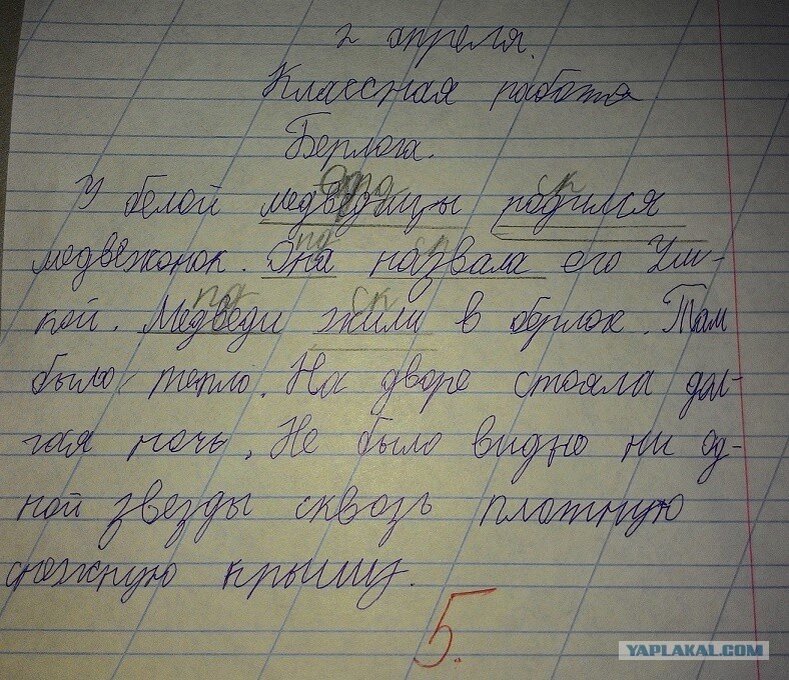 2 апреля.
Классная работа
Берлога.
У белой медведицы родился
медвежонок. Она назвала его Ум-
кой. Медведи жили в берлоге. Там
было тепло. На дворе стояла дол-
гая ночь. Не было видно ни од-
ной звезды сквозь плотную
снежную крышу.
5.
YAPLAKAL.COM